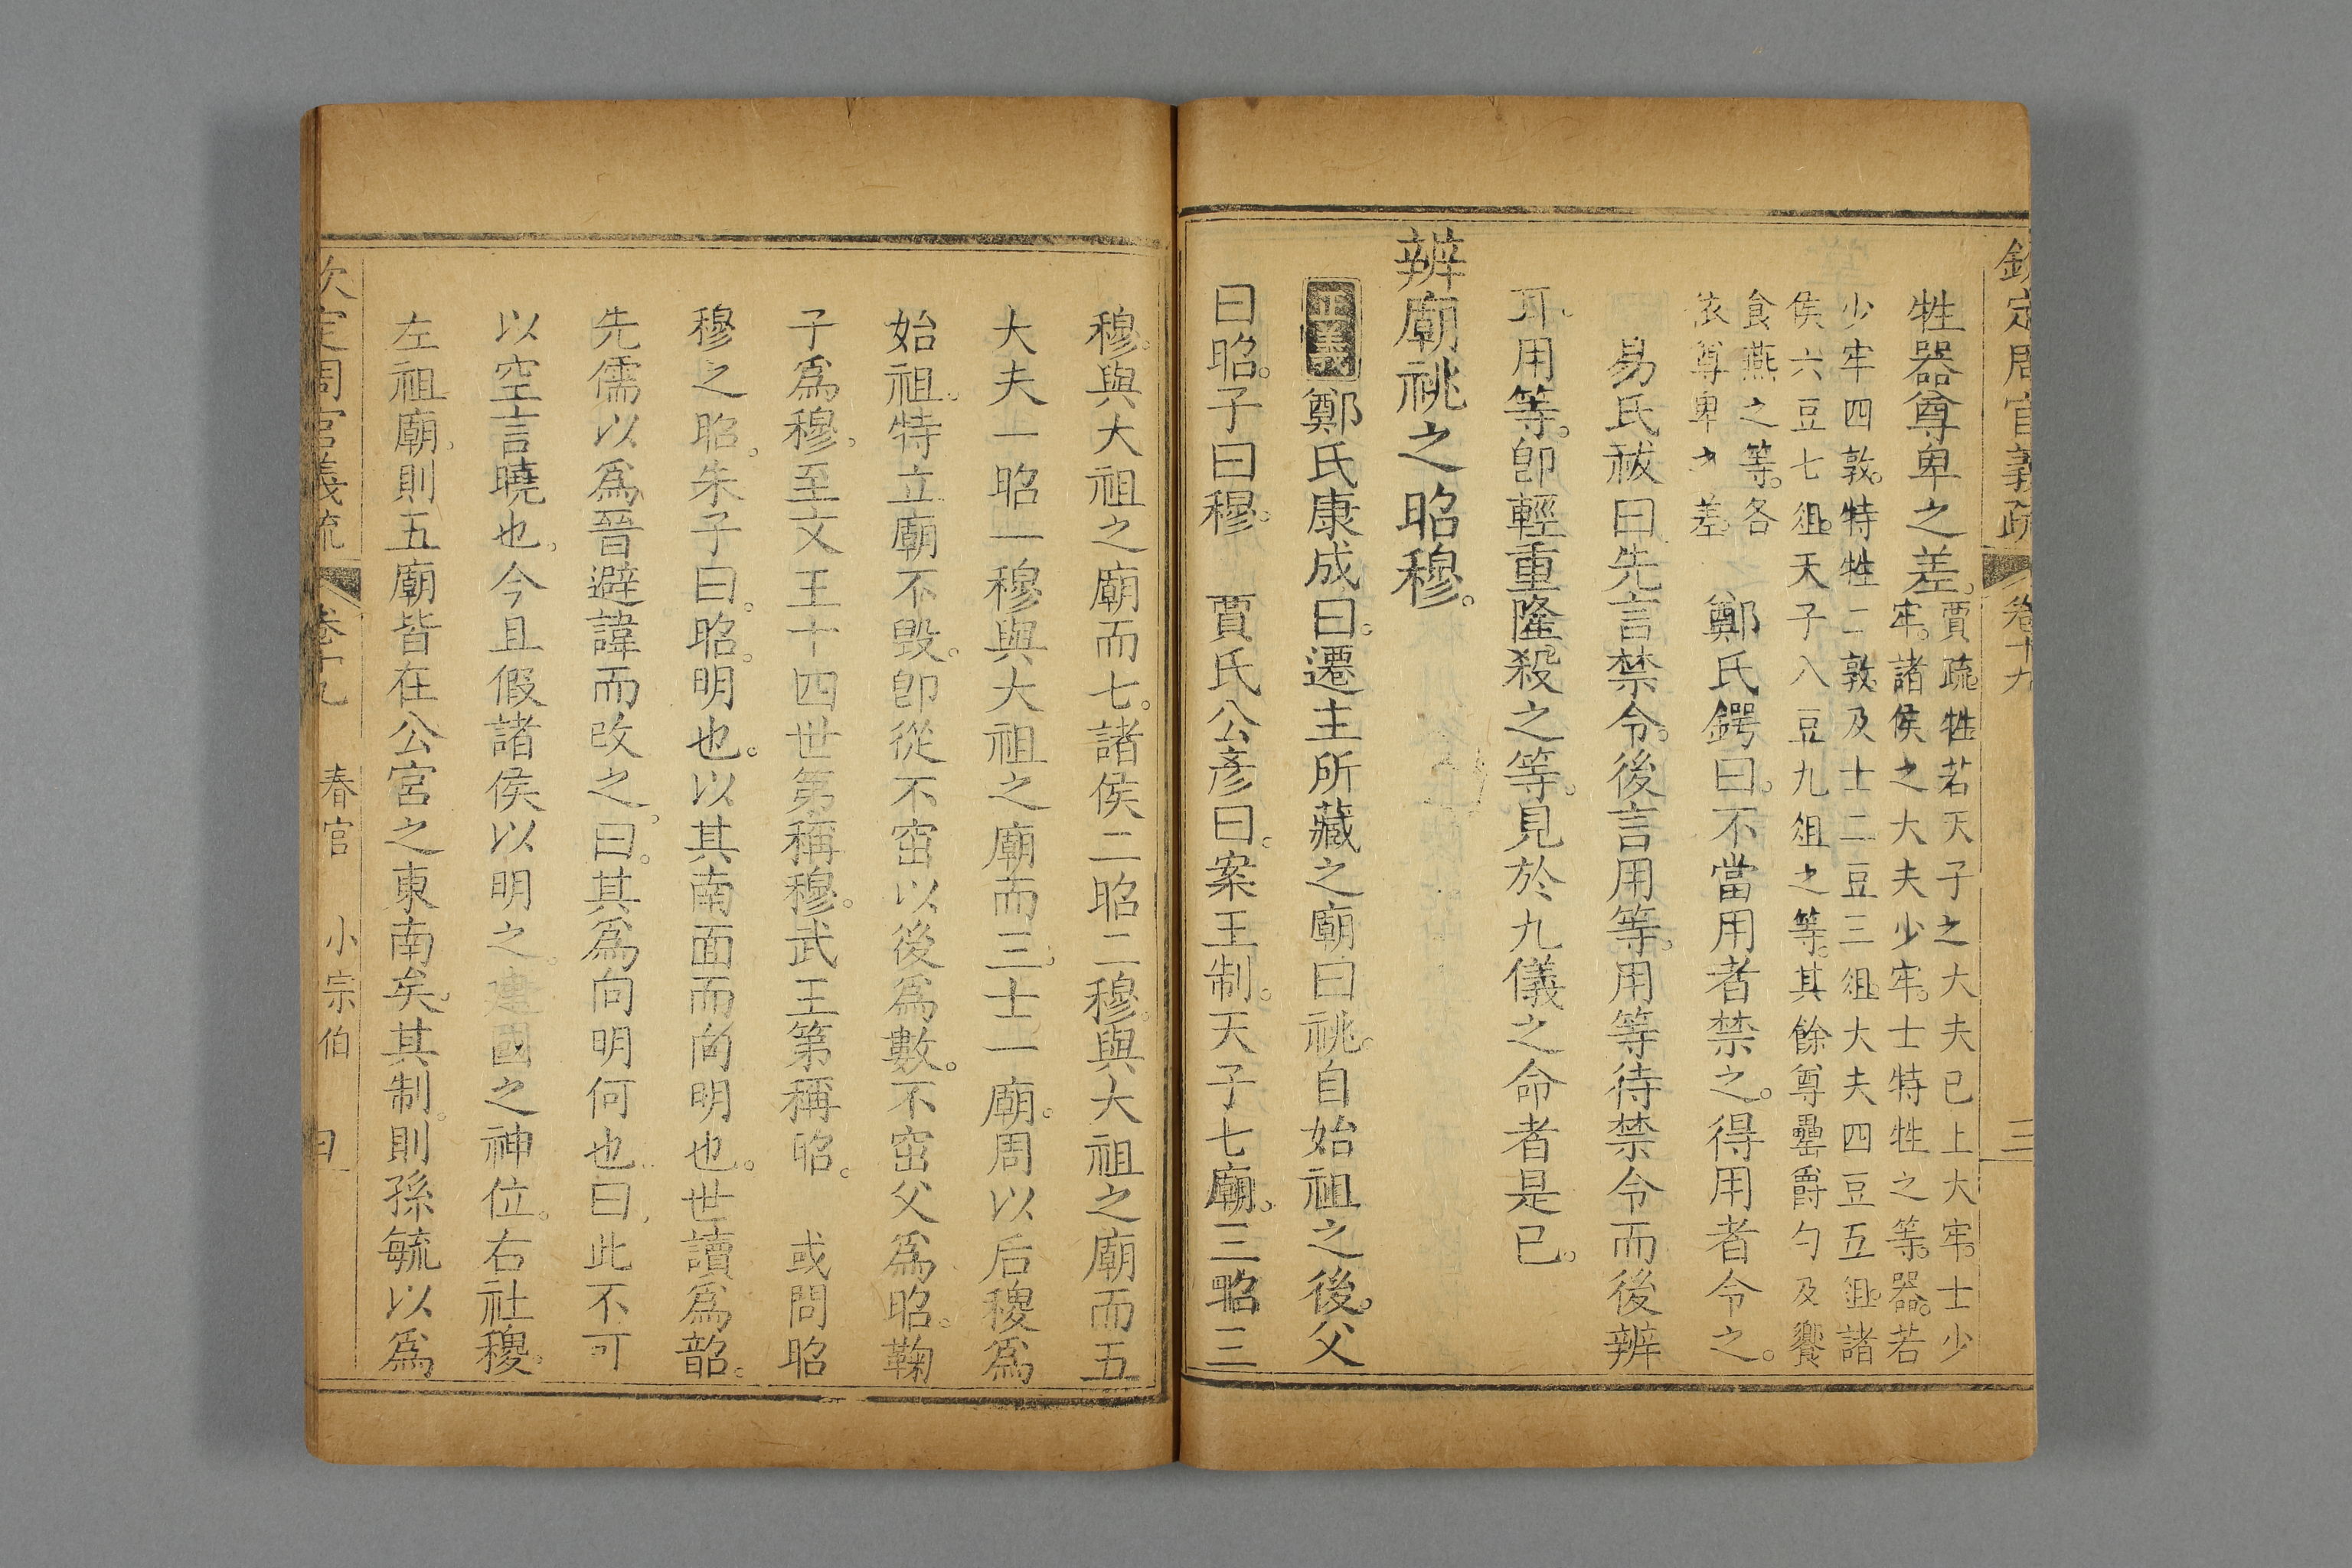 欽定周官義疏 卷十九 三
牲器尊卑之差。賈疏。牲若天子之大夫已上大牢。士少
牢。諸侯之大夫少牢。士特牲之等。器。若
少牢四敦。特牲二敦。及士二豆三俎。大夫四豆五俎。諸
侯六豆七俎。天子八豆九俎之等。其餘尊罍爵勺及饗
食燕之等。各
依尊卑之差。
鄭氏鍔曰。不當用者禁之。得用者令之。
易氏祓曰先言禁令。後言用等。用等待禁令而後辨
耳。用等。卽輕重隆殺之等。見於九儀之命者是已。
辨廟祧之昭穆。
正義 鄭氏康成曰。遷主所藏之廟曰祧。自始祖之後。父
曰昭。子曰穆。 賈氏公彥曰。案王制。天子七廟。三昭三
穆。與大祖之廟而七。諸侯二昭二穆。與大祖之廟而五
大夫一昭一穆與大祖之廟而三。士一廟。周以后稷爲
始祖。特立廟不毀。卽從不窋以後爲數。不窋父爲昭。鞠
子爲穆。至文王十四世第稱穆。武王第稱昭。 或問昭
穆之昭。朱子曰。昭。明也。以其南面而向明也。世讀爲韶。
先儒以爲晉避諱而改之。曰。其爲向明何也。曰。此不可
以空言曉也。今且假諸侯以明之。建國之神位。右社稷。
左祖廟。則五廟皆在公宮之東南矣。其制。則孫毓以爲
欽定周官義疏 卷十九 春官 小宗伯